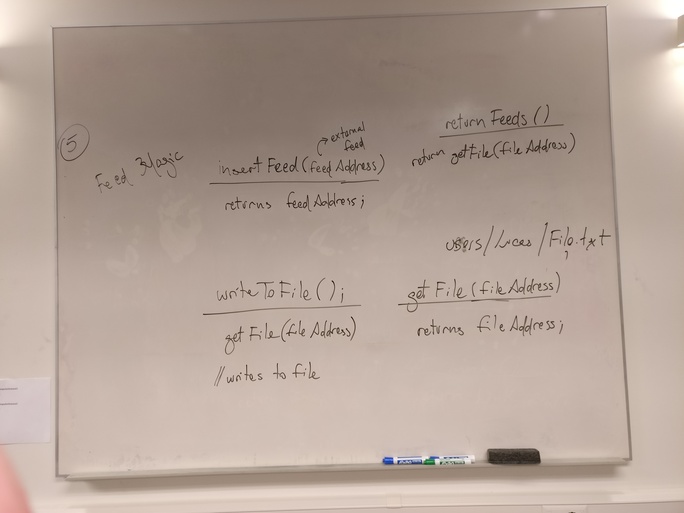 5
Feed Magic
external
feed
insert Feed (feed Address)
returns feed Address;
return Feeds ()
return getFile(file Address)
users/Lucas/File.txt
writeToFile();
get File (file Address)
//writes to file
get File (file Address)
returns file Address;